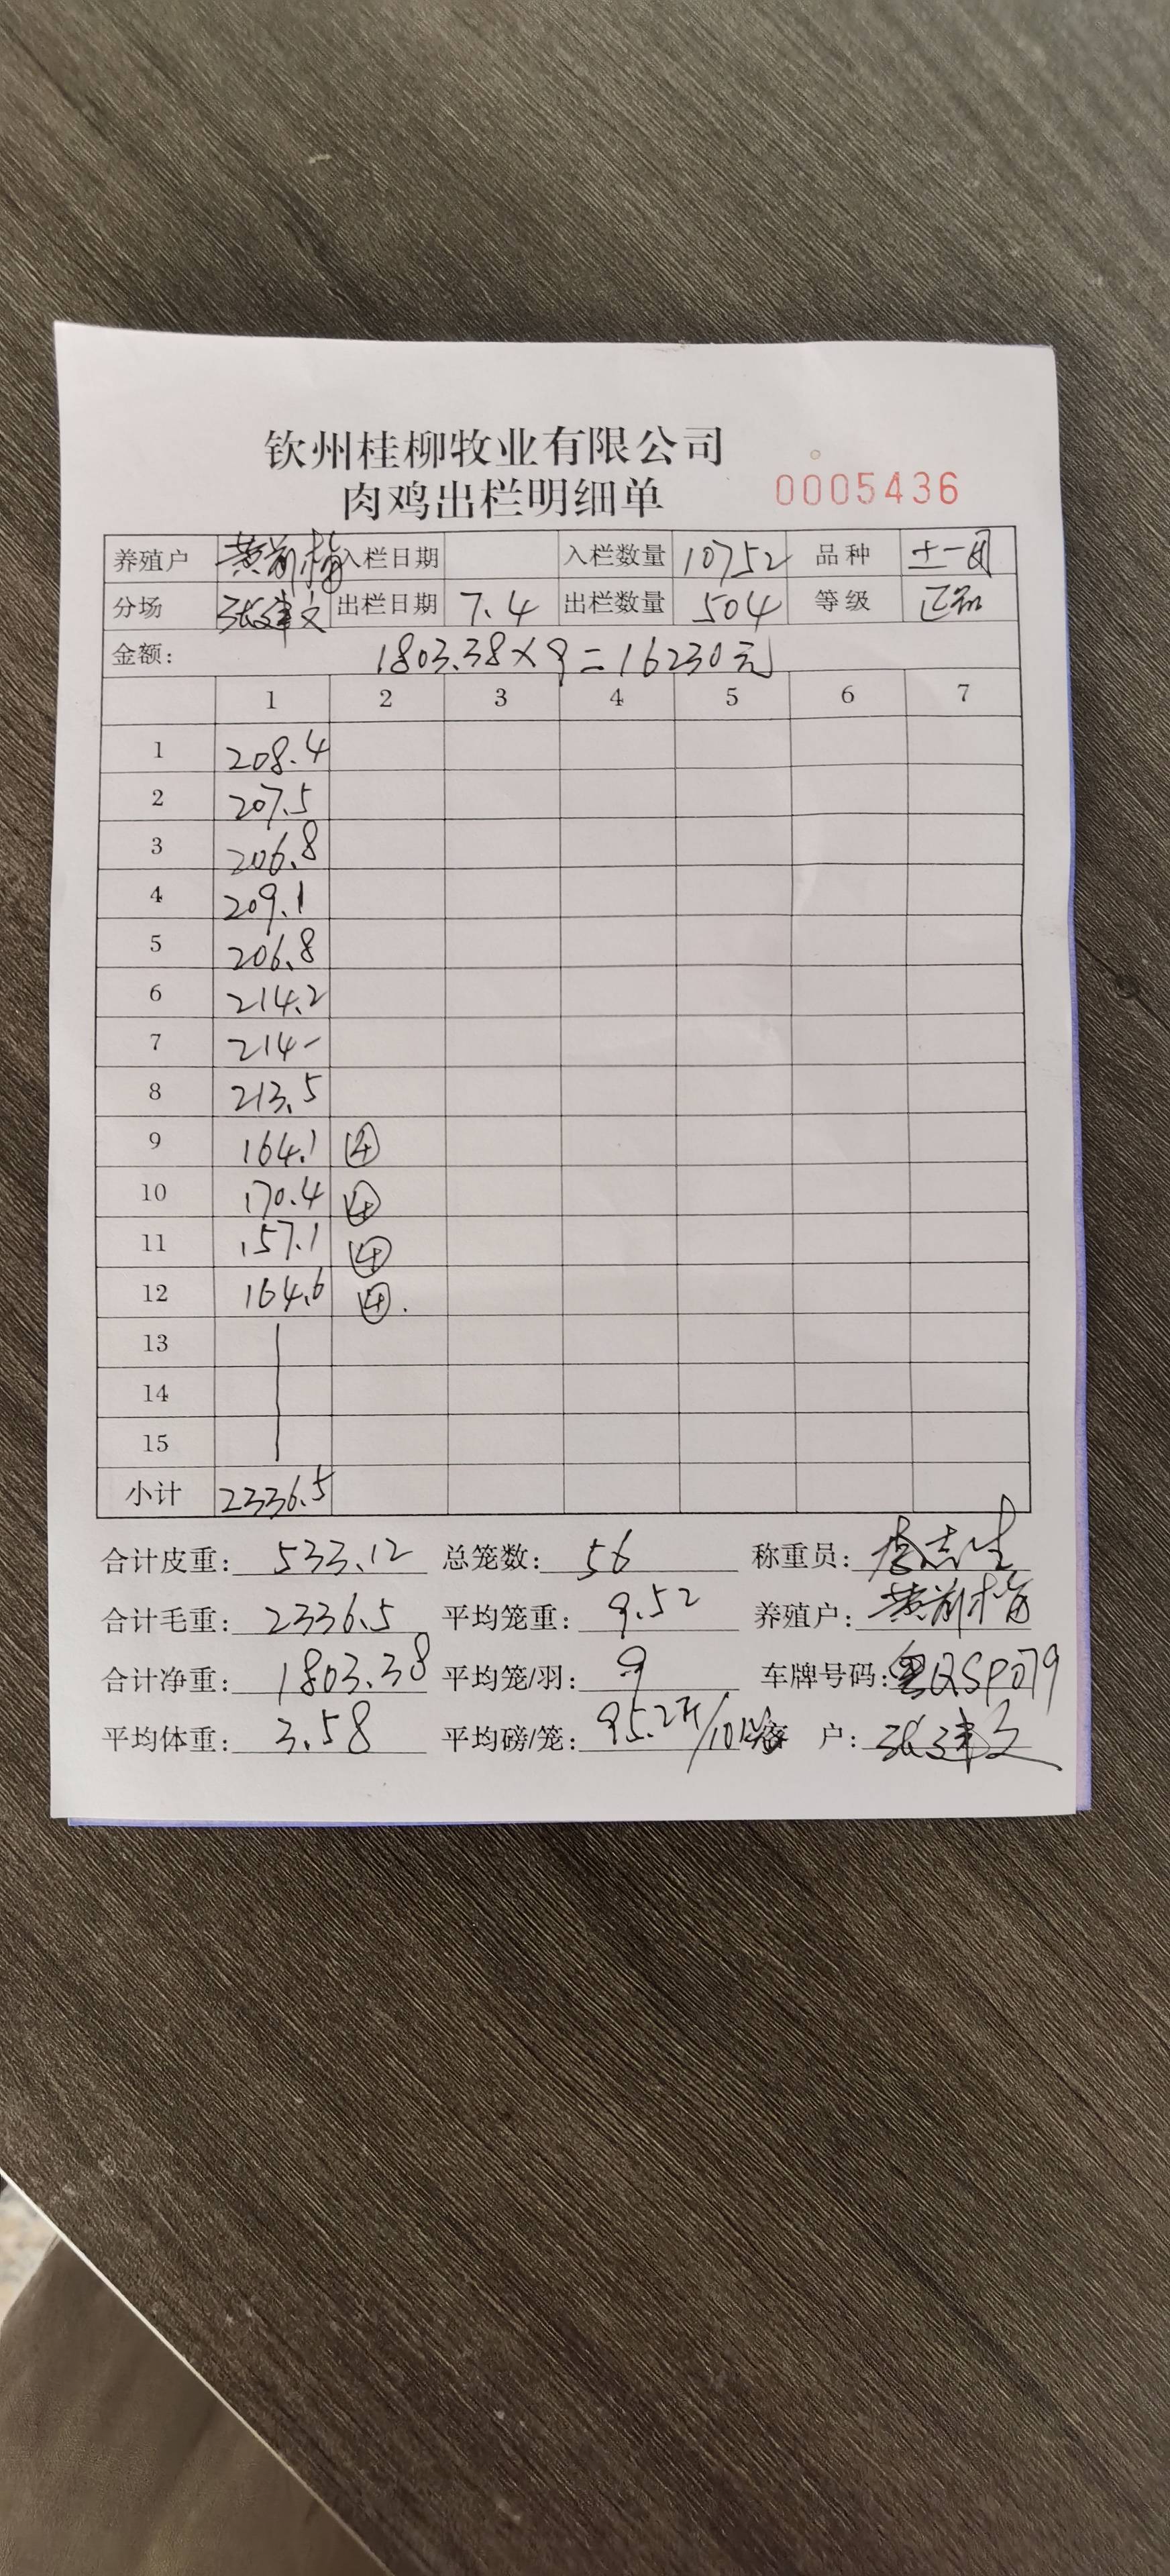 钦州桂柳牧业有限公司
肉鸡出栏明细单 0005436
养殖户 黄前梅 入栏日期 入栏数量 10752 品种 土一
分场 张建文 出栏日期 7.4 出栏数量 504 等级 正品
金额: 1803.38×9=16230元
1 2 3 4 5 6 7
1 208.4
2 207.5
3 206.8
4 209.1
5 206.8
6 214.2
7 214-
8 213.5
9 164.1 ④
10 170.4 ④
11 157.1 ④
12 164.6 ④.
13
14
15
小计 2336.5
合计皮重: 533.12 总笼数: 56 称重员: 李志生
合计毛重: 2336.5 平均笼重: 9.52 养殖户: 黄前梅
合计净重: 1803.38 平均笼/羽: 9 车牌号码: 粤QSP079
平均体重: 3.58 平均磅/笼: 95.2斤/10 户: 张建文